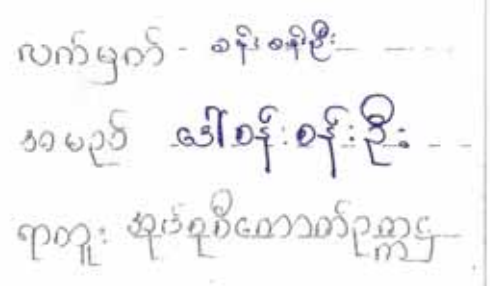 လက်မှတ် - စန်းစန်းဦး
အမည် ဒေါ်စန်းစန်းဦး
ရာထူး အုပ်စုစီကောက်ဥက္ကဋ္ဌ